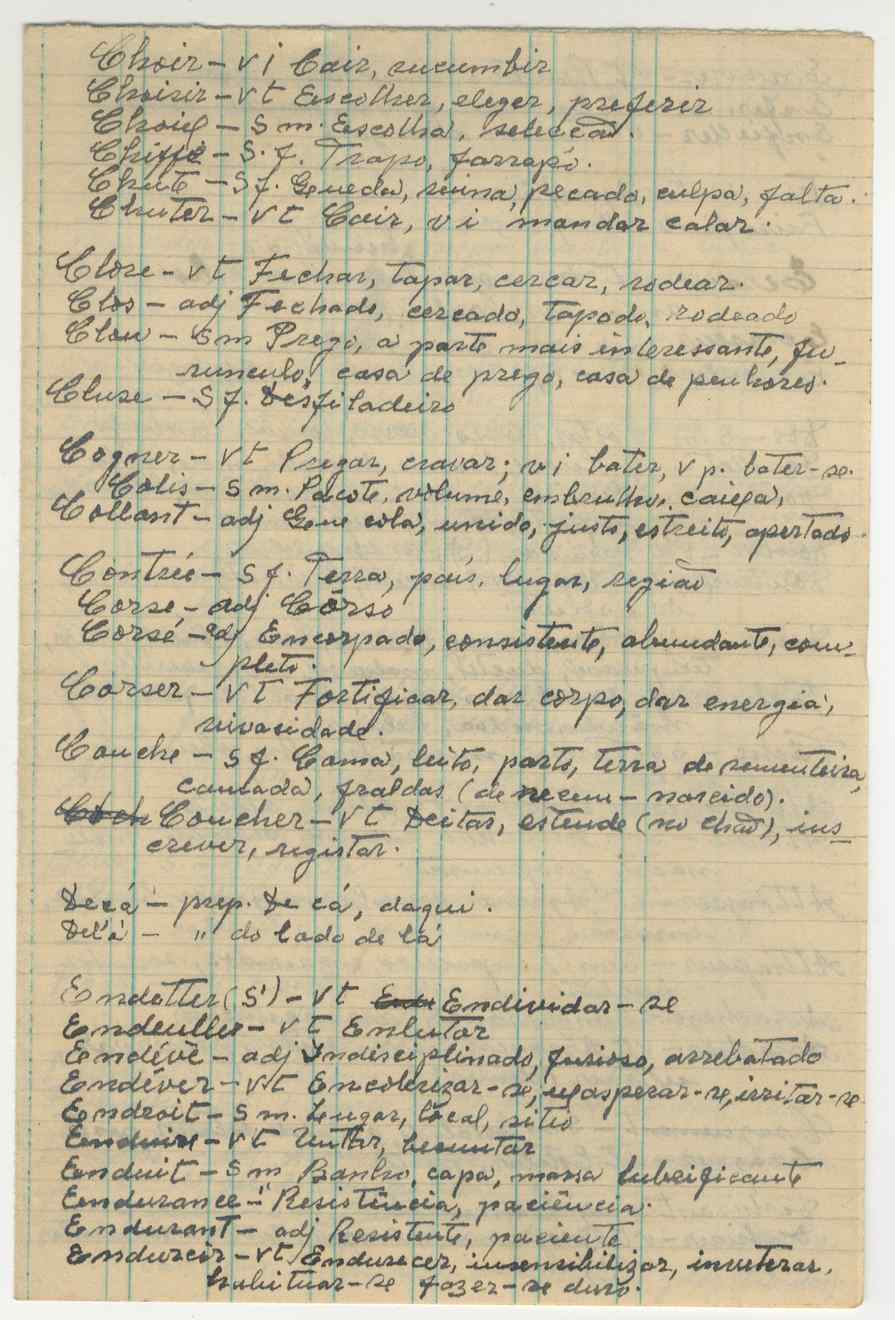 Choir - v i Cair, sucumbir
Choisir - vt Escolher, eleger, preferir
Choix - s m. Escolha, selecção.
Chiffe - s. f. Trapo, farrapo.
Chute - s f. Queda, ruina, pecado, culpa, falta.
Chuter - vt Cair, v i mandar calar.
Clore - vt Fechar, tapar, cercar, rodear.
Clos - adj Fechado, cercado, tapado, rodeado
Clou - s m Prego, a parte mais interessante, fu-
runculo, casa de prego, casa de penhores.
Cluse - s f. Desfiladeiro
Cogner - vt Pregar, cravar; v i bater, v p. bater-se.
Colis - s m. Pacote, volume, embrulho, caixa,
Collant - adj Que cola, unido, justo, estreito, apertado.
Contrée - s f. Terra, país, lugar, região
Corse - adj Côrso
Corsé - adj Encorpado, consistente, abundante, com-
pleto.
Corser - vt Fortificar, dar corpo, dar energia,
vivasidade.
Couche - s f. Cama, leito, parto, terra de sementeira,
camada, fraldas (de recem-nascido).
Coucher - vt Deitar, estende (no chão), ins-
crever, registar.
Deçá - prep. De cá, daqui.
Del'á - " do lado de lá
Endetter (S') - vt Endividar-se
Endeuller - vt Enlutar
Endêvé - adj Indisciplinado, furioso, arrebatado
Endêver - vt Encolerizar-se, exasperar-se, irritar-se
Endroit - s m. Lugar, local, sitio
Enduire - vt Untar, besuntar
Enduit - s m Banho, capa, massa lubrificante
Endurance - " Resistência, paciência.
Endurant - adj Resistente, paciente
Endurcir - vt Endurecer, insensibilizar, inveterar,
habituar-se fazer-se duro.